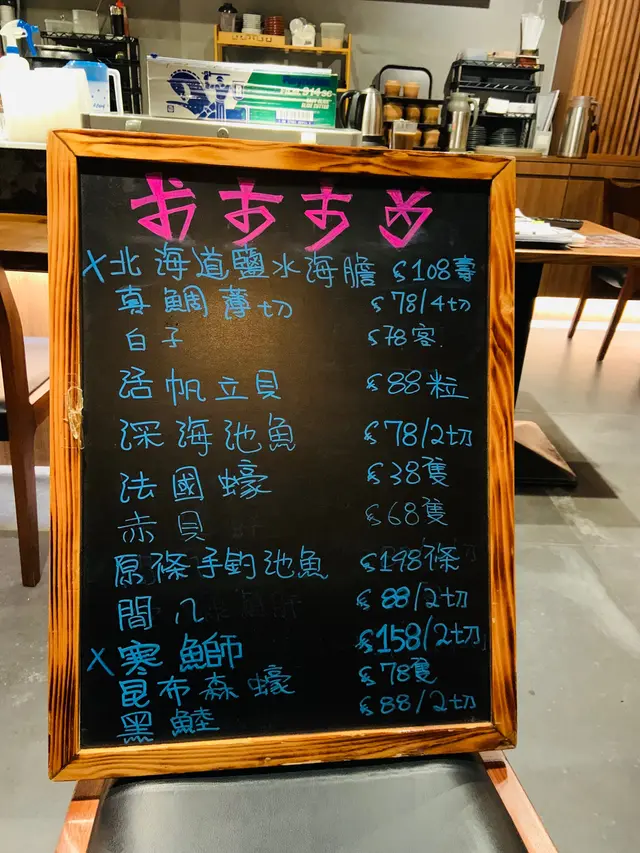 おすすめ
X 北海道鹽水海膽 $108壽
真鯛薄切 $78/4切
白子 $78客
活帆立貝 $88粒
深海池魚 $78/2切
法國蠔 $38隻
赤貝 $68隻
原條手釣池魚 $198條
間八 $88/2切
X 寒鰤 $158/2切
昆布森蠔 $78隻
黑鯥 $88/2切